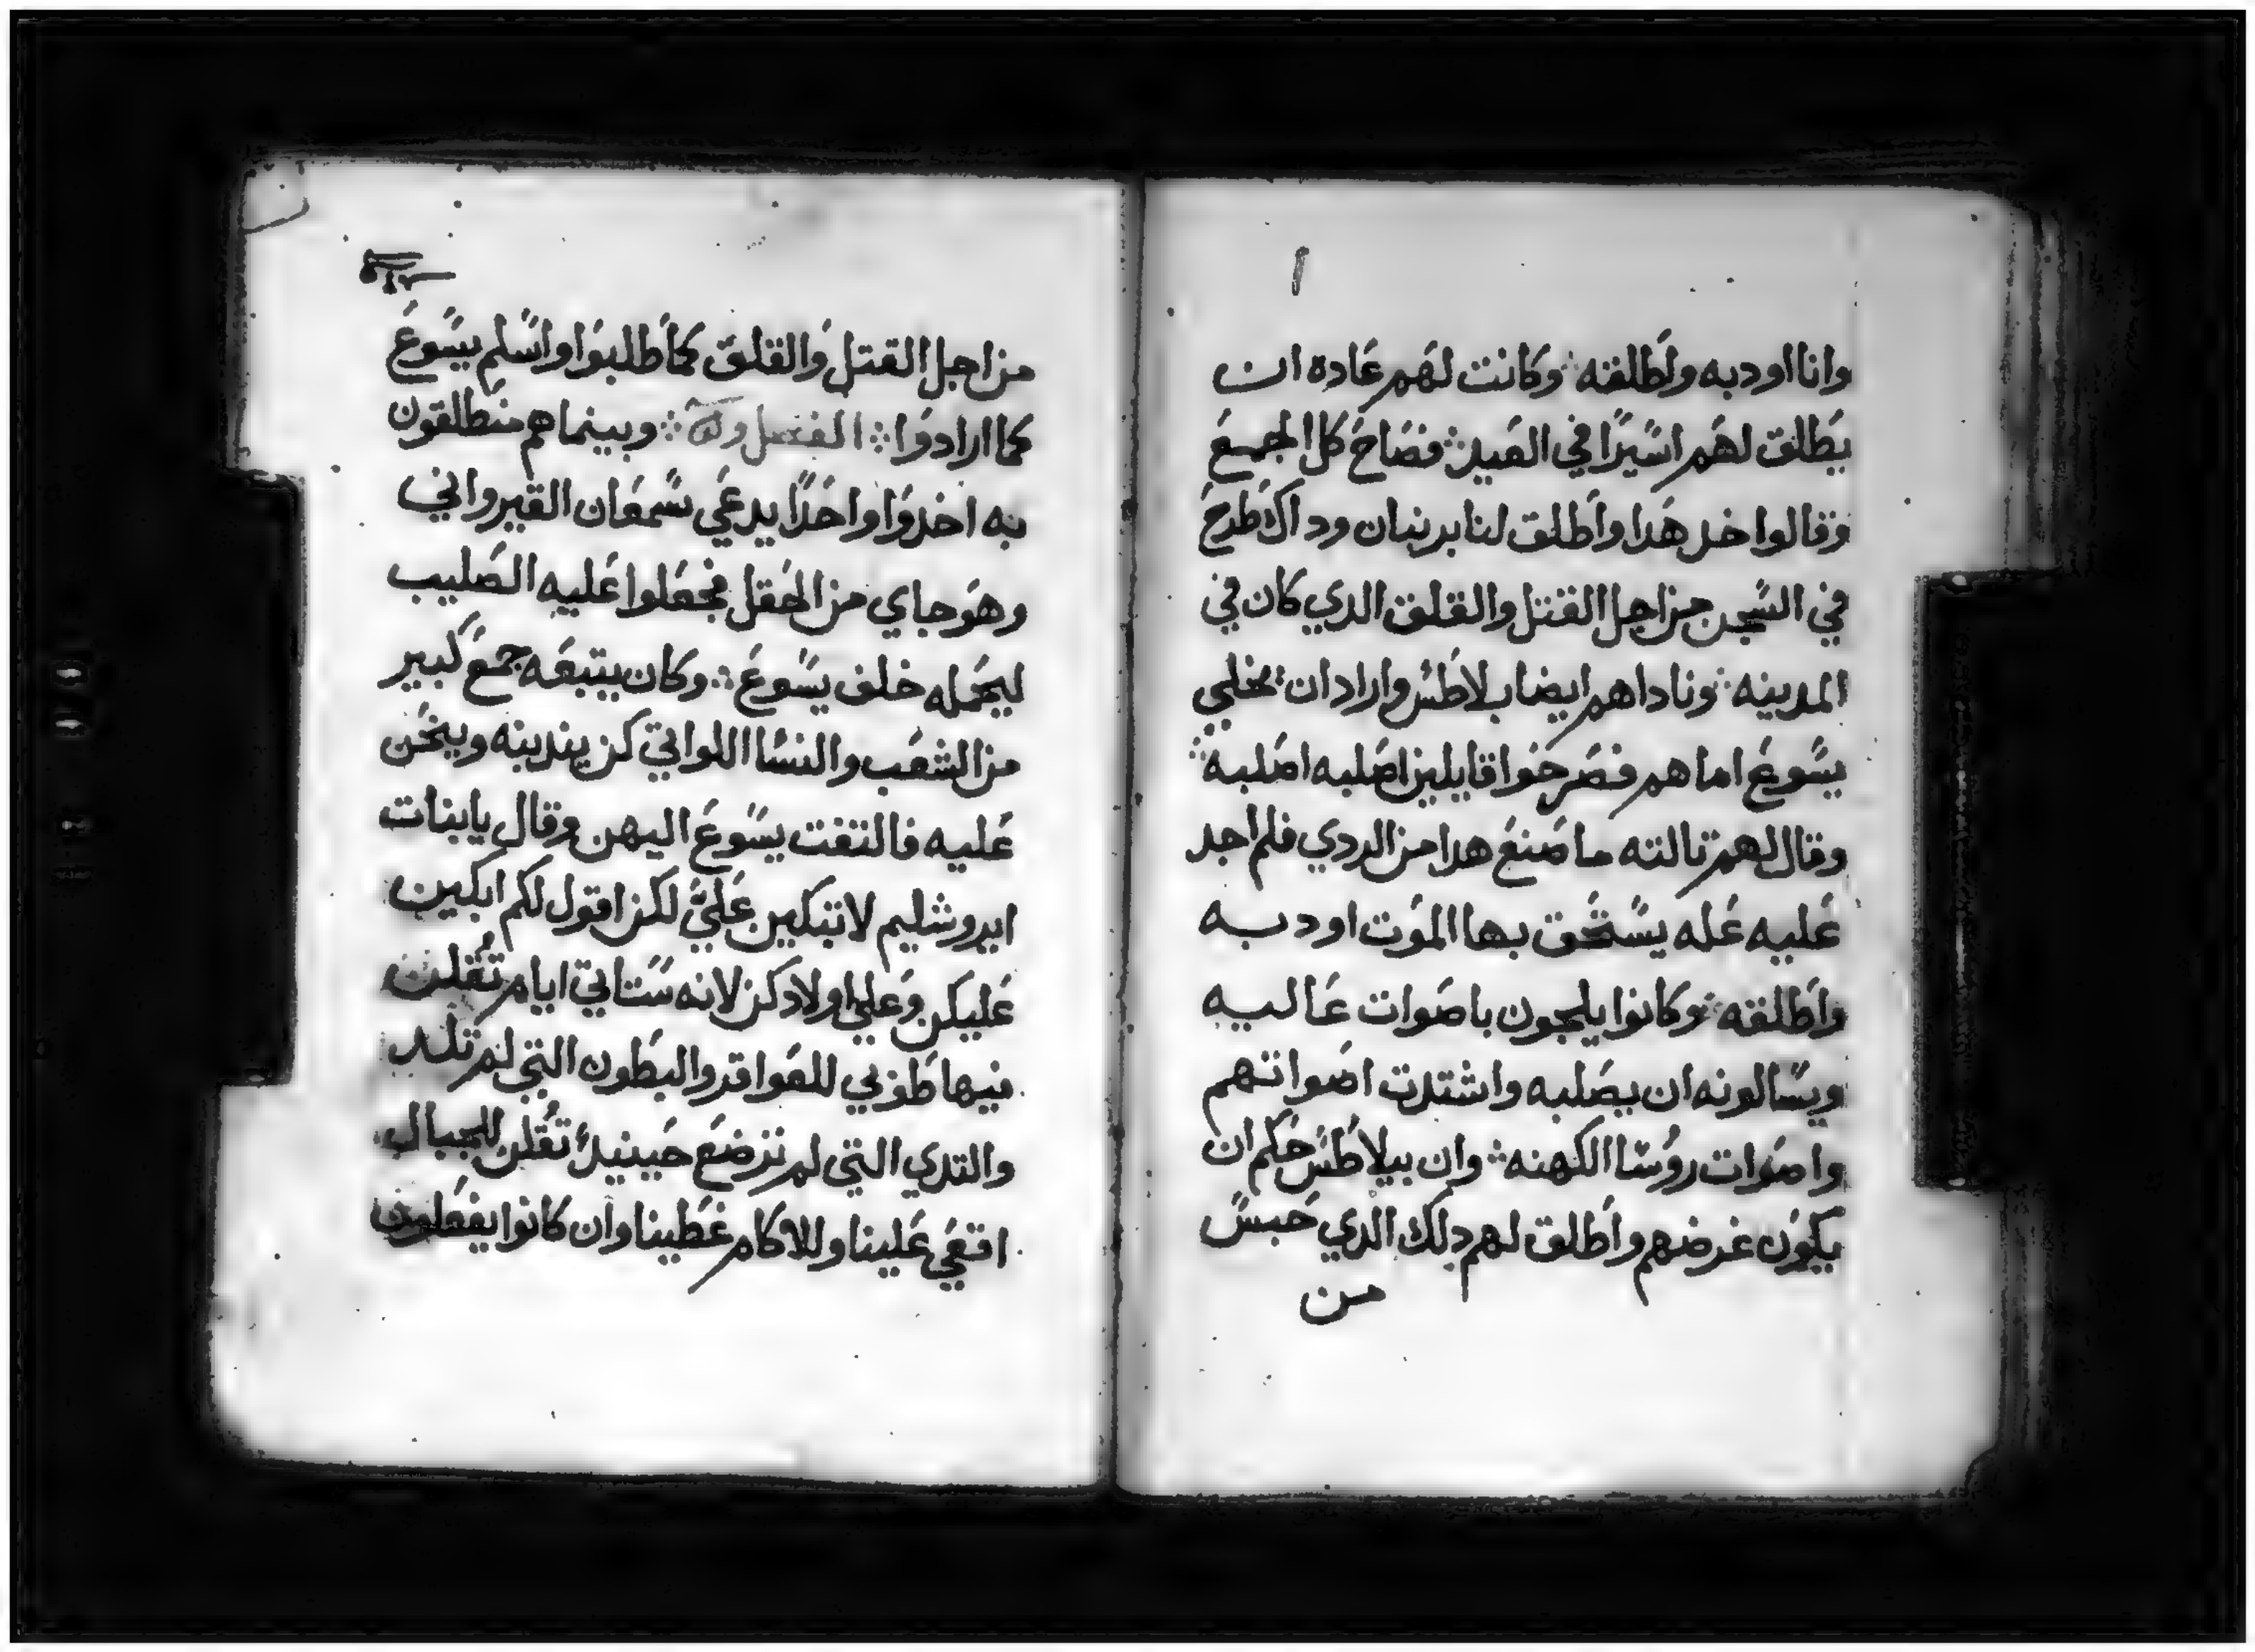 وانا اودبه واطلقه ۞ وكانت لهم عاده ان
يطلق لهم اسيرا في العيد ۞ فصاح كل الجمع
وقالوا خد هدا واطلق لنا بربنان وداك طرح
في السجن من اجل القتل والقلق الدي كان في
المدينه ۞ وناداهم ايضا بلاطس واراد ان يخلي
يسوع اما هم فصرخوا قايلين اصلبه اصلبه ۞
وقال لهم تالته ما صنع هدا من الردي فلم اجد
عليه عله يستحق بها الموت اودبه
واطلقه ۞ وكانوا يلجون باصوات عاليه
ويسالونه ان يصلبه واشتدت اصواتهم
واصوات روسا الكهنه ۞ وان بيلاطس حكم ان
يكون غرضهم واطلق لهم دلك الدي حبس
من
من اجل القتل والقلق كما طلبوا واسلم يسوع
كما ارادوا ۞ الفصل ۞ وبينما هم منطلقون
به اخدوا واحدا يدعي سمعان القيرواني
وهو جاي من الحقل فجعلوا عليه الصليب
ليحمله خلف يسوع ۞ وكان يتبعه جمع كبير
من الشعب والنسا اللواتي كن يندبنه وينحن
عليه فالتفت يسوع اليهن وقال يا بنات
ايروشليم لا تبكين علي لكن اقول لكم ابكين
عليكن وعلي اولادكن لانه ستاتي ايام تقلن
فيها طوبي للعواقر والبطون التي لم تلد
والتدي التي لم ترضع حينيد تقلن للجبال
اقعي علينا وللاكام غطينا وان كانوا يفعلون